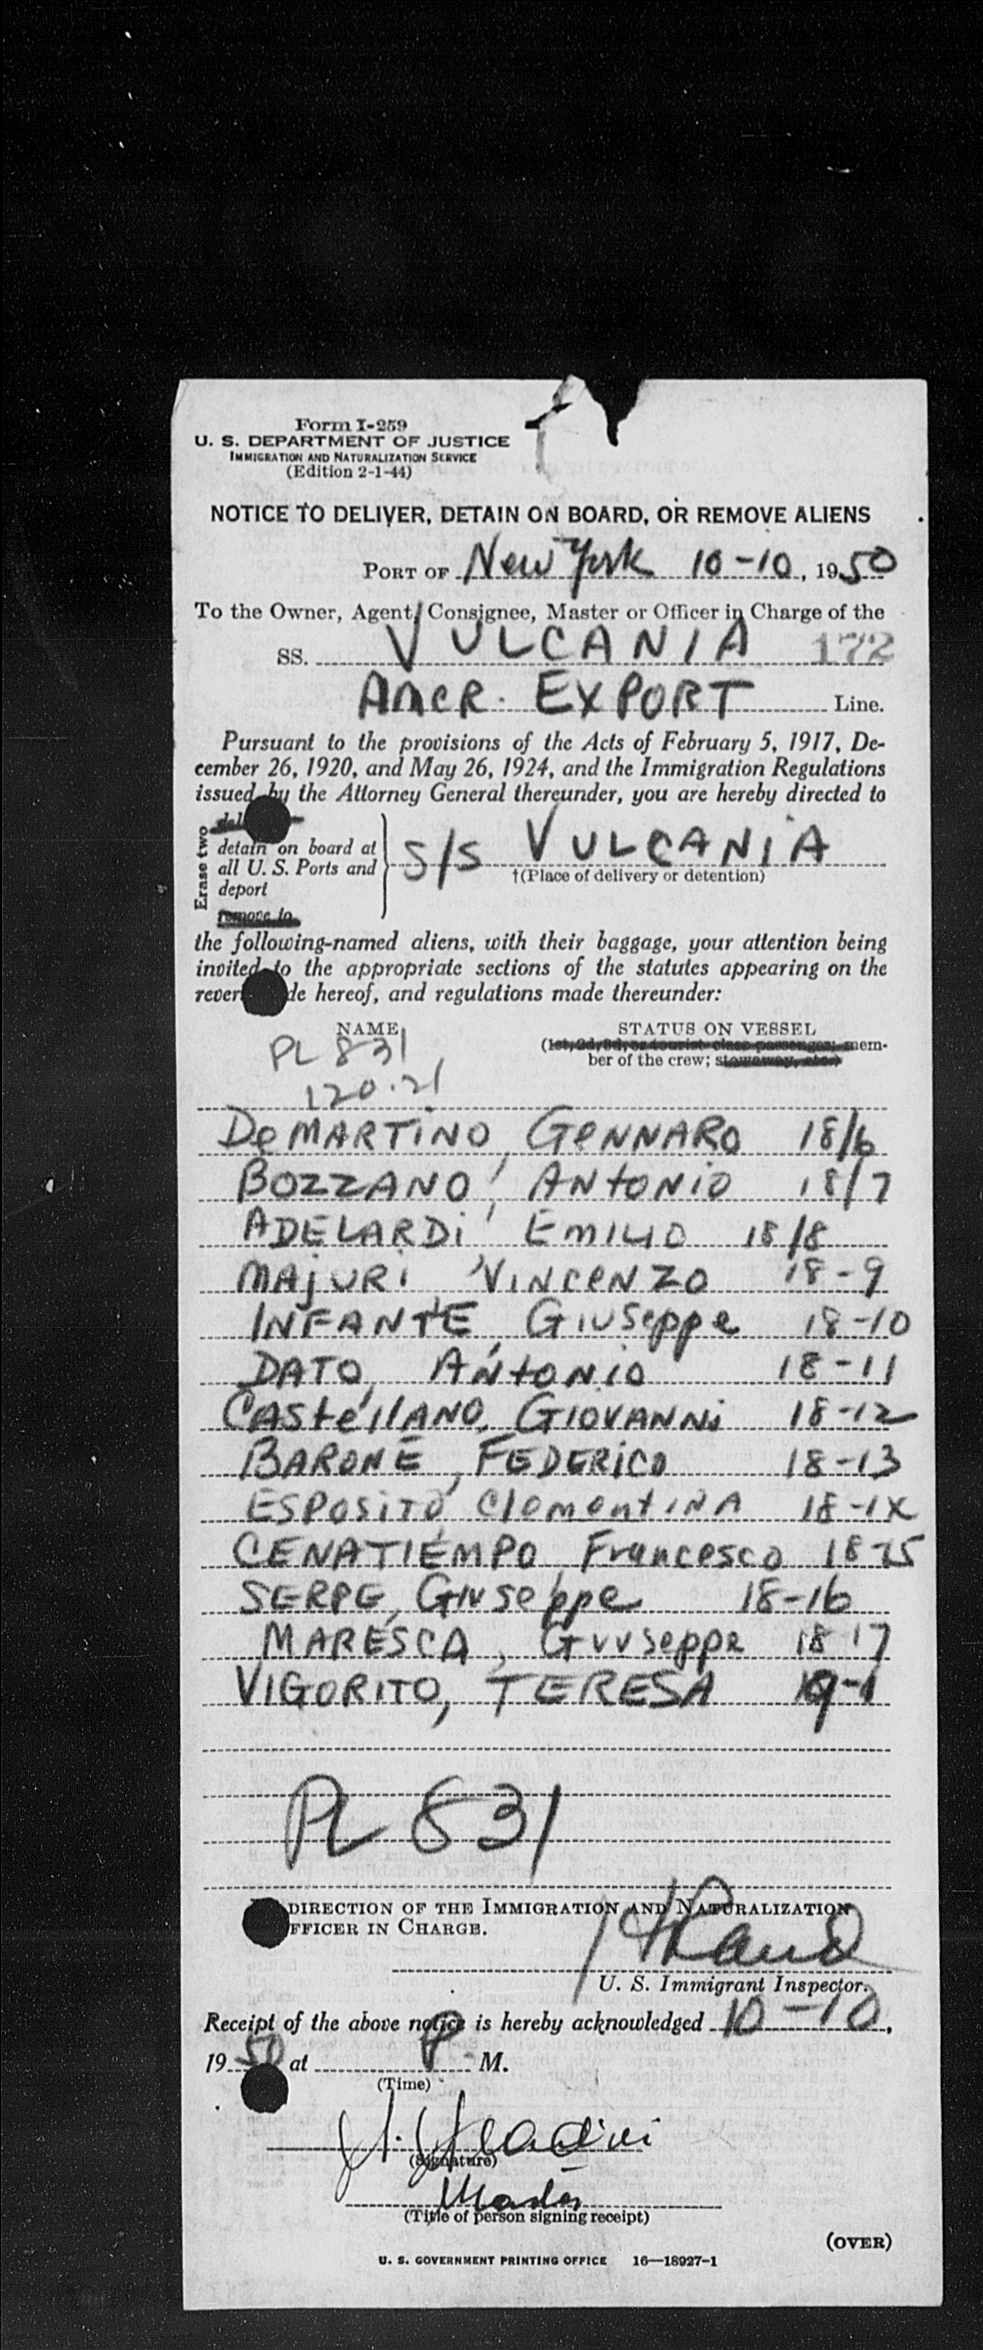 Form I-259
U. S. DEPARTMENT OF JUSTICE
IMMIGRATION AND NATURALIZATION SERVICE
(Edition 2-1-44)
NOTICE TO DELIVER, DETAIN ON BOARD, OR REMOVE ALIENS
PORT OF New York 10-10, 1950
To the Owner, Agent, Consignee, Master or Officer in Charge of the
SS. VULCANIA 172
AMER. EXPORT Line.
Pursuant to the provisions of the Acts of February 5, 1917, De-
cember 26, 1920, and May 26, 1924, and the Immigration Regulations
issued by the Attorney General thereunder, you are hereby directed to
Erase two
detain on board at
all U. S. Ports and
deport
remove to
S/S VULCANIA
†(Place of delivery or detention)
the following-named aliens, with their baggage, your attention being
invited to the appropriate sections of the statutes appearing on the
hereof, and regulations made thereunder:
NAME STATUS ON VESSEL
PL 831 (1st, 2d, 3d, or tourist class passenger; mem-
ber of the crew; stowaway, etc.)
120.21
DeMARTINO, GeNNARO 18/6
BOZZANO, ANtONiO 18/7
ADELARDi, EMILIO 18/8
MAjURi, VINCENZO 18-9
INFANTE, Giuseppe 18-10
DATO, ANtONIO 18-11
CAStellANO, GIOVANNi 18-12
BARONE, FEDERiCO 18-13
ESPOSiTO, ClementiNA
CENATIEMPO Francesco 18-15
SERPE, Giuseppe 18-16
MARESCA, Giuseppe 18 17
VIGORITO, TERESA 19-1
PL 831
DIRECTION OF THE IMMIGRATION AND NATURALIZATION
OFFICER IN CHARGE.
U. S. Immigrant Inspector.
Receipt of the above notice is hereby acknowledged 10-10,
1950 at P M.
(Time)
(Signature)
Master
(Title of person signing receipt)
(OVER)
U. S. GOVERNMENT PRINTING OFFICE 16—18927-1